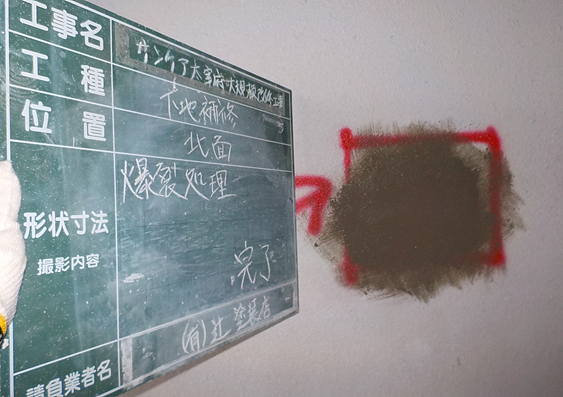 工事名 サンケア太宰府大規模改修工事
工種 下地補修
位置 北面
爆裂処理
形状寸法
撮影内容
完了
請負業者名 (有)辻塗装店